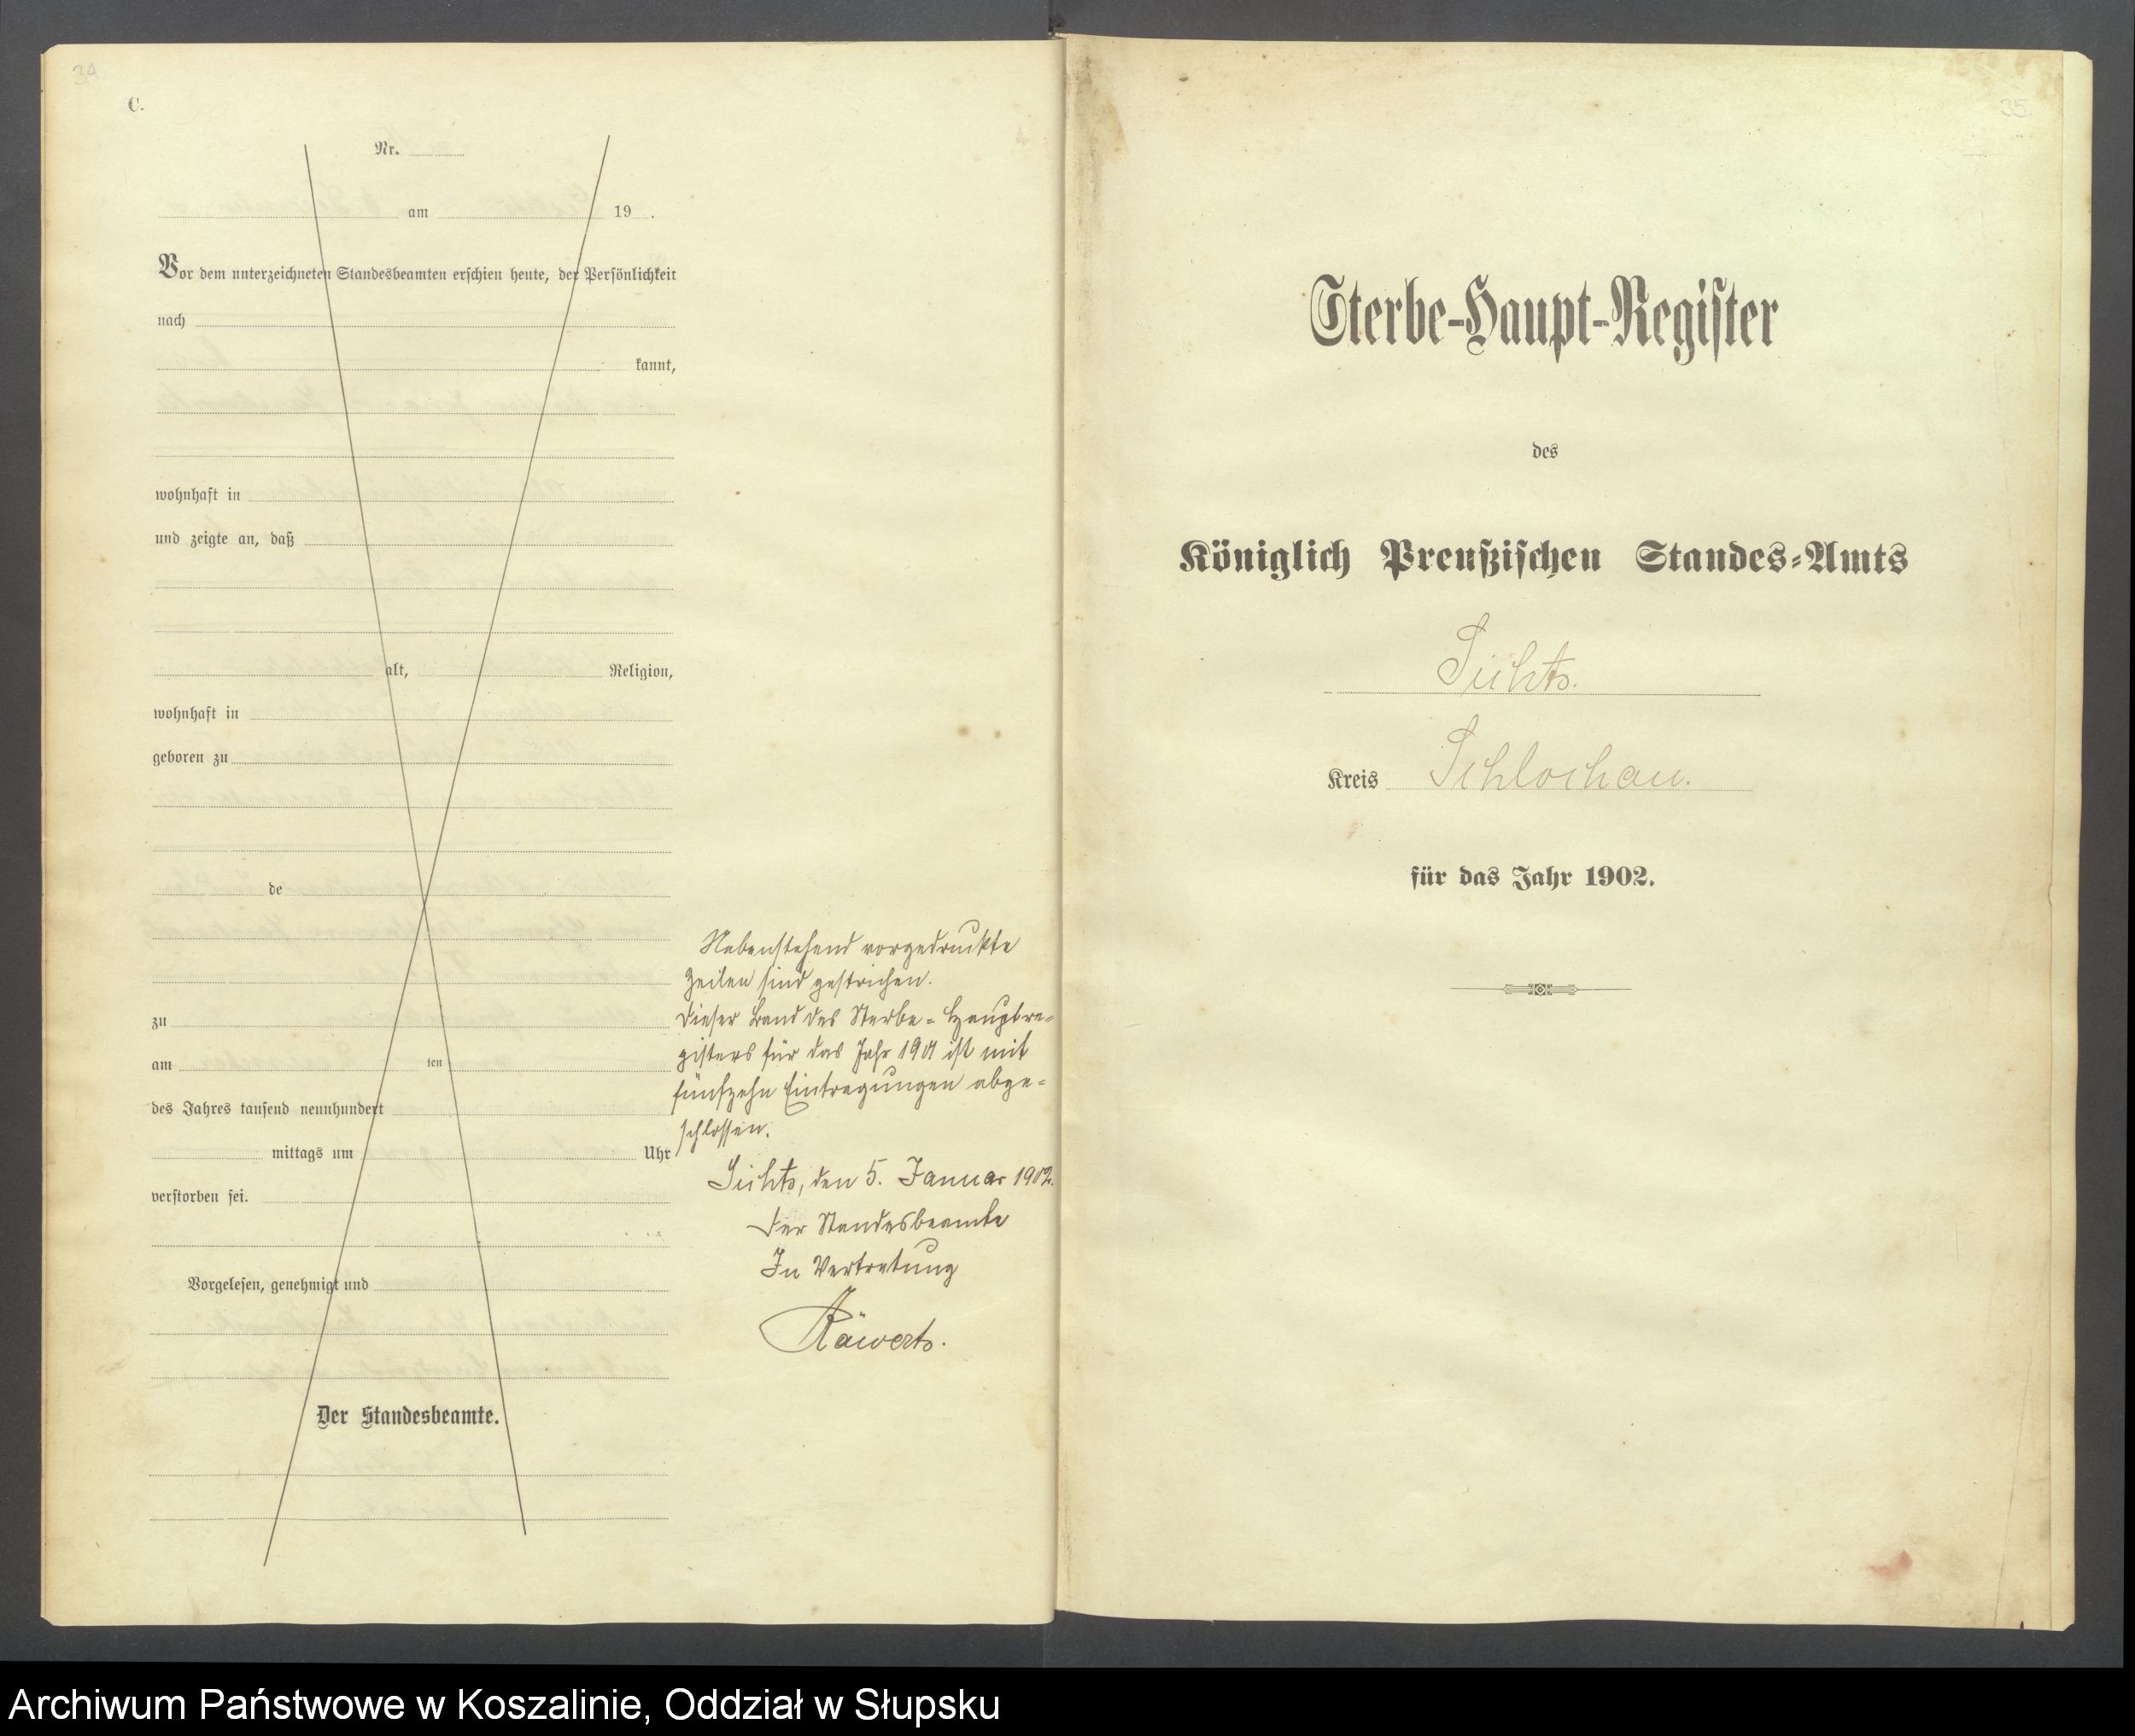 34
C.
Nr.
am 19 .
Vor dem unterzeichneten Standesbeamten erschien heute, der Persönlichkeit
nach
kannt,
wohnhaft in
und zeigte an, daß
alt, Religion,
wohnhaft in
geboren zu
de
zu
am ten
des Jahres tausend neunhundert
mittags um Uhr
verstorben sei.
Vorgelesen, genehmigt und
Der Standesbeamte.
Nebenstehend vorgedruckte
Zeilen sind gestrichen.
Dieser Band des Sterbe-Hauptre-
gisters für das Jahr 1901 ist mit
fünfzehn Eintragungen abge-
schlossen.
Sichts, den 5. Januar 1902.
Der Standesbeamte
In Vertretung
Räwerts.
35
Sterbe-Haupt-Register
des
Königlich Preußischen Standes-Amts
Sichts.
Kreis Schlochau.
für das Jahr 1902.
Archiwum Państwowe w Koszalinie, Oddział w Słupsku